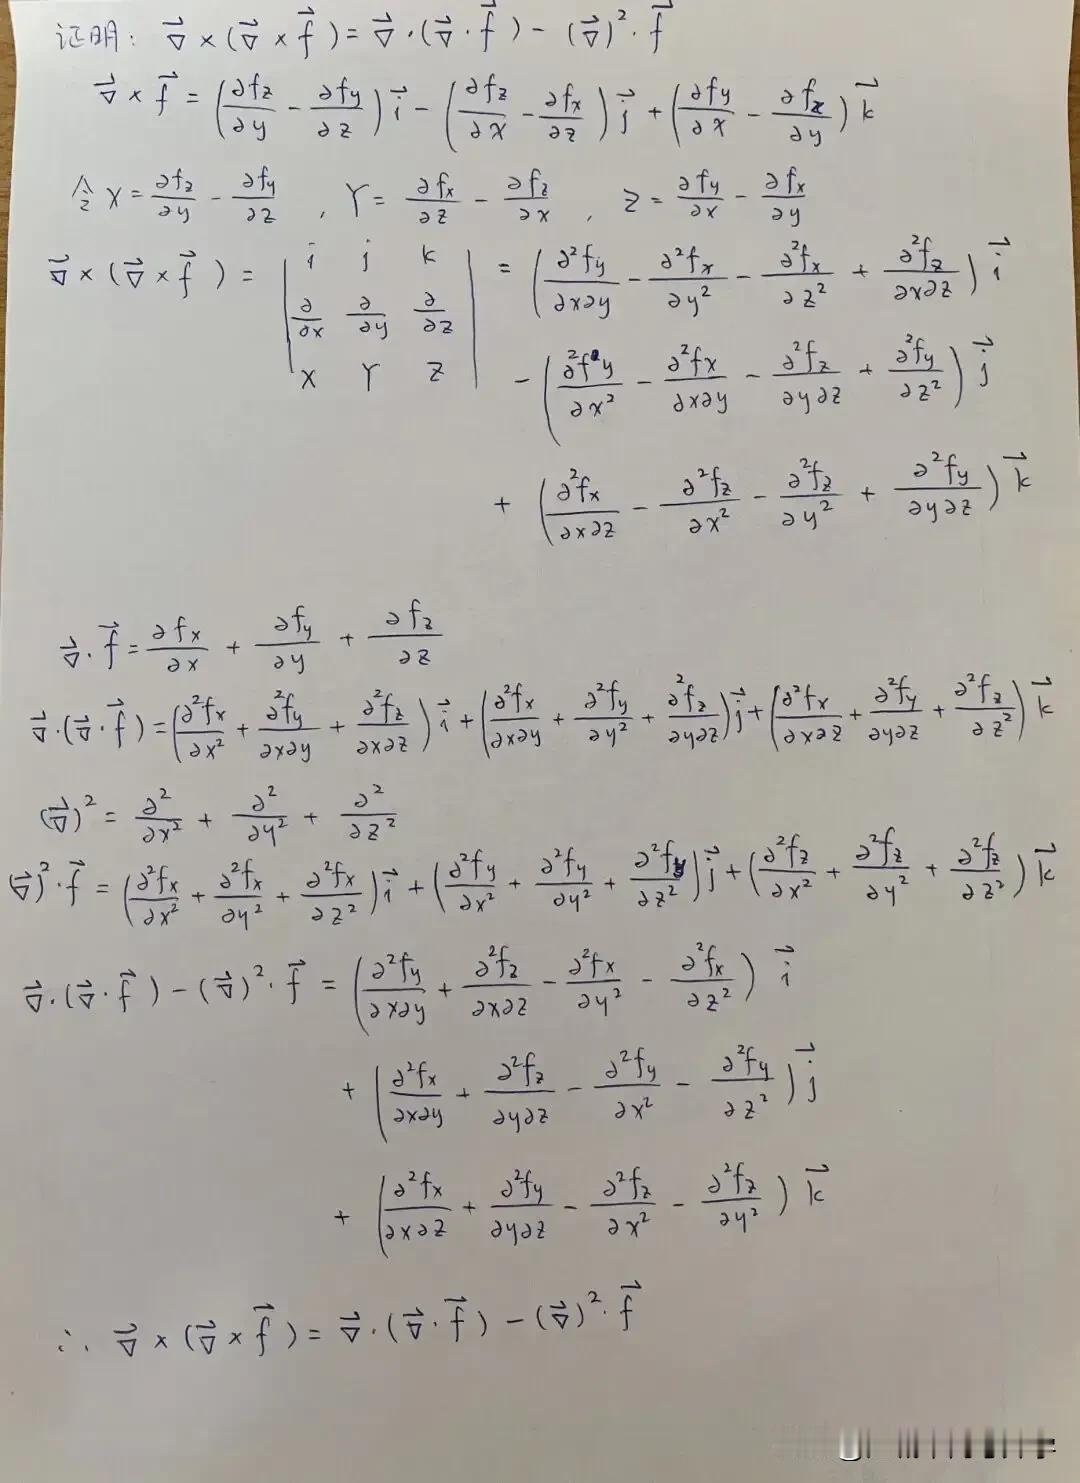 证明: $\vec{\nabla} \times (\vec{\nabla} \times \vec{f}) = \vec{\nabla} \cdot (\vec{\nabla} \cdot \vec{f}) - (\vec{\nabla})^2 \cdot \vec{f}$
$\vec{\nabla} \times \vec{f} = \left(\frac{\partial f_z}{\partial y} - \frac{\partial f_y}{\partial z}\right)\vec{i} - \left(\frac{\partial f_z}{\partial x} - \frac{\partial f_x}{\partial z}\right)\vec{j} + \left(\frac{\partial f_y}{\partial x} - \frac{\partial f_x}{\partial y}\right)\vec{k}$
令 $X = \frac{\partial f_z}{\partial y} - \frac{\partial f_y}{\partial z}$ , $Y = \frac{\partial f_x}{\partial z} - \frac{\partial f_z}{\partial x}$ , $Z = \frac{\partial f_y}{\partial x} - \frac{\partial f_x}{\partial y}$
$\vec{\nabla} \times (\vec{\nabla} \times \vec{f}) = \begin{vmatrix} i & j & k \\ \frac{\partial}{\partial x} & \frac{\partial}{\partial y} & \frac{\partial}{\partial z} \\ X & Y & Z \end{vmatrix} = \left(\frac{\partial^2 f_y}{\partial x \partial y} - \frac{\partial^2 f_x}{\partial y^2} - \frac{\partial^2 f_x}{\partial z^2} + \frac{\partial^2 f_z}{\partial x \partial z}\right)\vec{i}$
$- \left(\frac{\partial^2 f_y}{\partial x^2} - \frac{\partial^2 f_x}{\partial x \partial y} - \frac{\partial^2 f_z}{\partial y \partial z} + \frac{\partial^2 f_y}{\partial z^2}\right)\vec{j}$
$+ \left(\frac{\partial^2 f_x}{\partial x \partial z} - \frac{\partial^2 f_z}{\partial x^2} - \frac{\partial^2 f_z}{\partial y^2} + \frac{\partial^2 f_y}{\partial y \partial z}\right)\vec{k}$
$\vec{\nabla} \cdot \vec{f} = \frac{\partial f_x}{\partial x} + \frac{\partial f_y}{\partial y} + \frac{\partial f_z}{\partial z}$
$\vec{\nabla} \cdot (\vec{\nabla} \cdot \vec{f}) = \left(\frac{\partial^2 f_x}{\partial x^2} + \frac{\partial^2 f_y}{\partial x \partial y} + \frac{\partial^2 f_z}{\partial x \partial z}\right)\vec{i} + \left(\frac{\partial^2 f_x}{\partial x \partial y} + \frac{\partial^2 f_y}{\partial y^2} + \frac{\partial^2 f_z}{\partial y \partial z}\right)\vec{j} + \left(\frac{\partial^2 f_x}{\partial x \partial z} + \frac{\partial^2 f_y}{\partial y \partial z} + \frac{\partial^2 f_z}{\partial z^2}\right)\vec{k}$
$(\vec{\nabla})^2 = \frac{\partial^2}{\partial x^2} + \frac{\partial^2}{\partial y^2} + \frac{\partial^2}{\partial z^2}$
$(\vec{\nabla})^2 \cdot \vec{f} = \left(\frac{\partial^2 f_x}{\partial x^2} + \frac{\partial^2 f_x}{\partial y^2} + \frac{\partial^2 f_x}{\partial z^2}\right)\vec{i} + \left(\frac{\partial^2 f_y}{\partial x^2} + \frac{\partial^2 f_y}{\partial y^2} + \frac{\partial^2 f_y}{\partial z^2}\right)\vec{j} + \left(\frac{\partial^2 f_z}{\partial x^2} + \frac{\partial^2 f_z}{\partial y^2} + \frac{\partial^2 f_z}{\partial z^2}\right)\vec{k}$
$\vec{\nabla} \cdot (\vec{\nabla} \cdot \vec{f}) - (\vec{\nabla})^2 \cdot \vec{f} = \left(\frac{\partial^2 f_y}{\partial x \partial y} + \frac{\partial^2 f_z}{\partial x \partial z} - \frac{\partial^2 f_x}{\partial y^2} - \frac{\partial^2 f_x}{\partial z^2}\right)\vec{i}$
$+ \left(\frac{\partial^2 f_x}{\partial x \partial y} + \frac{\partial^2 f_z}{\partial y \partial z} - \frac{\partial^2 f_y}{\partial x^2} - \frac{\partial^2 f_y}{\partial z^2}\right)\vec{j}$
$+ \left(\frac{\partial^2 f_x}{\partial x \partial z} + \frac{\partial^2 f_y}{\partial y \partial z} - \frac{\partial^2 f_z}{\partial x^2} - \frac{\partial^2 f_z}{\partial y^2}\right)\vec{k}$
$\therefore \vec{\nabla} \times (\vec{\nabla} \times \vec{f}) = \vec{\nabla} \cdot (\vec{\nabla} \cdot \vec{f}) - (\vec{\nabla})^2 \cdot \vec{f}$